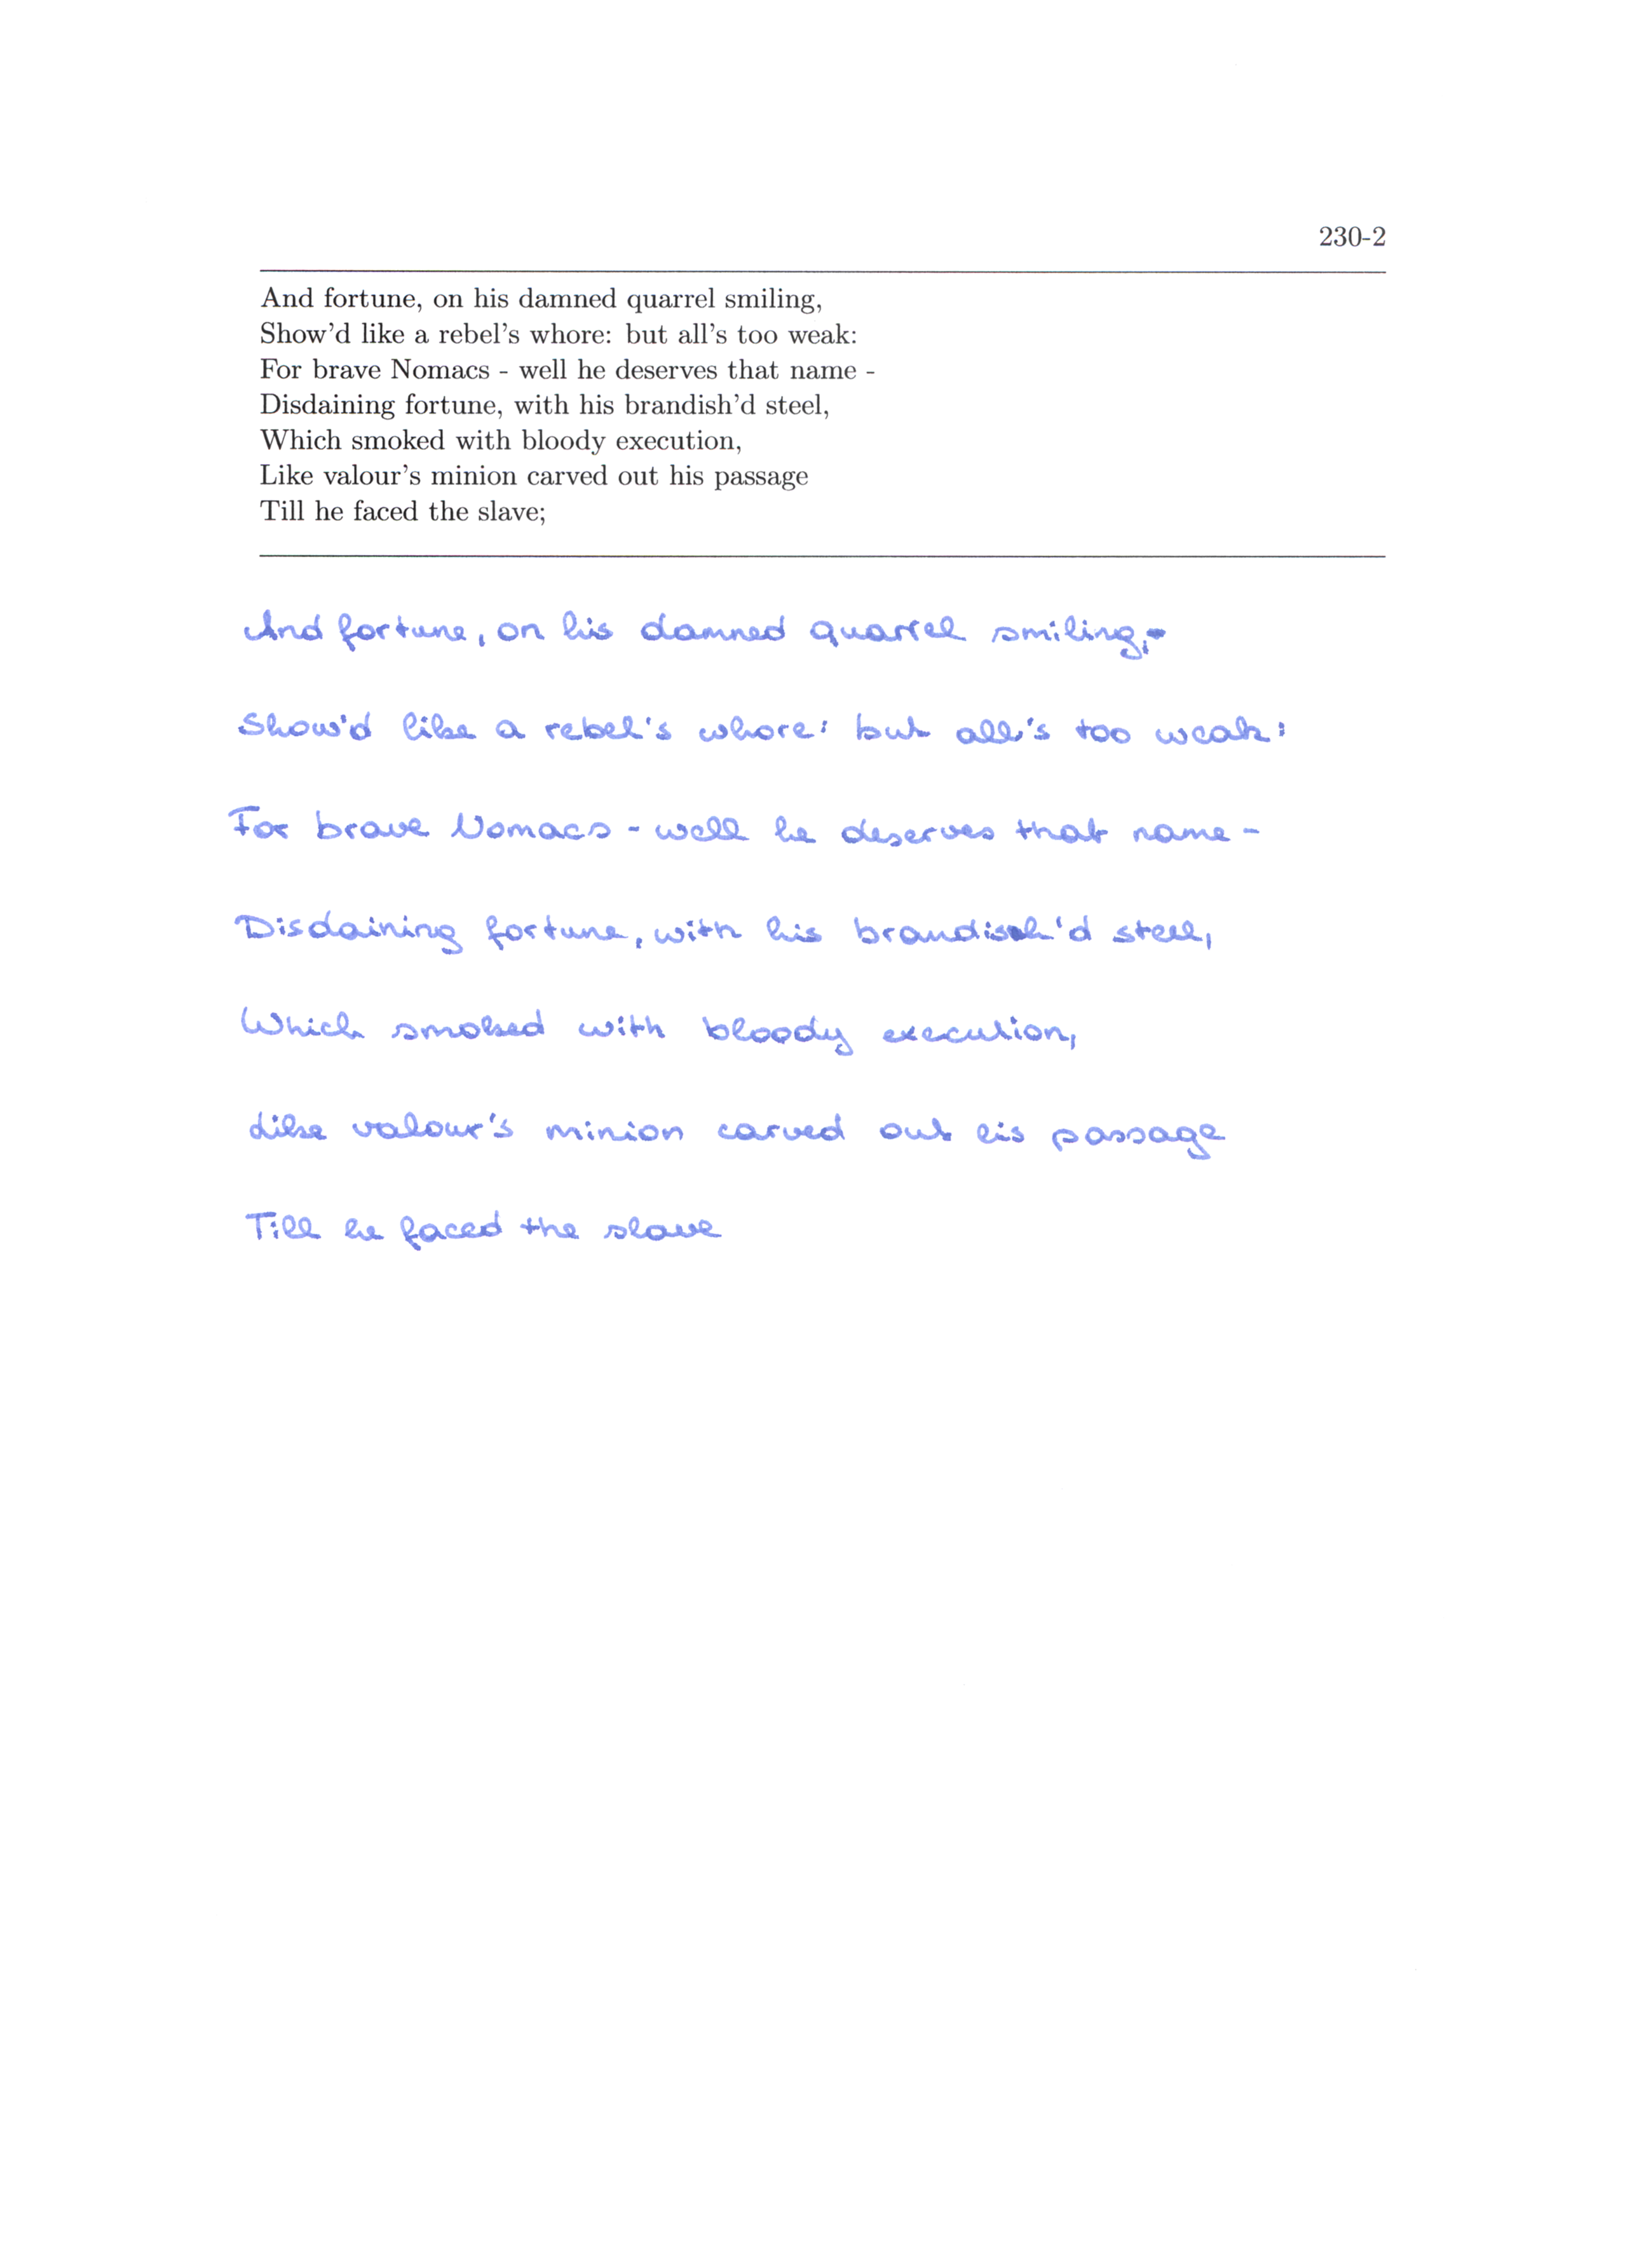 230-2
And fortune, on his damned quarrel smiling,
Show'd like a rebel's whore: but all's too weak:
For brave Nomacs - well he deserves that name -
Disdaining fortune, with his brandish'd steel,
Which smoked with bloody execution,
Like valour's minion carved out his passage
Till he faced the slave;
And fortune, on his damned quarrel smiling,
Show'd like a rebel's whore: but all's too weak:
For brave Nomacs - well he deserves that name -
Disdaining fortune, with his brandish'd steel,
Which smoked with bloody execution,
Like valour's minion carved out his passage
Till he faced the slave